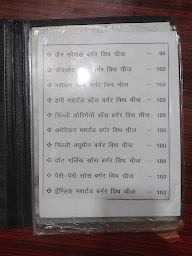 ❖ ग्रीन स्पेशल बर्गर विथ चीज – 90
❖ बर्गर विथ चीज – 100
❖ बर्गर विथ चीज – 100
❖ हनी मस्टर्ड सॉस बर्गर विथ चीज – 100
❖ चिल्ली ओरिगेनो सॉस बर्गर विथ चीज – 100
❖ अमेरिकन मस्टर्ड बर्गर विथ चीज – 100
❖ चिल्ली क्यूमीन बर्गर विथ चीज – 100
❖ हॉट गार्लिक सॉस बर्गर विथ चीज – 100
❖ पेरी-पेरी सॉस बर्गर विथ चीज – 100
❖ इंग्लिश मस्टर्ड बर्गर विथ चीज – 100